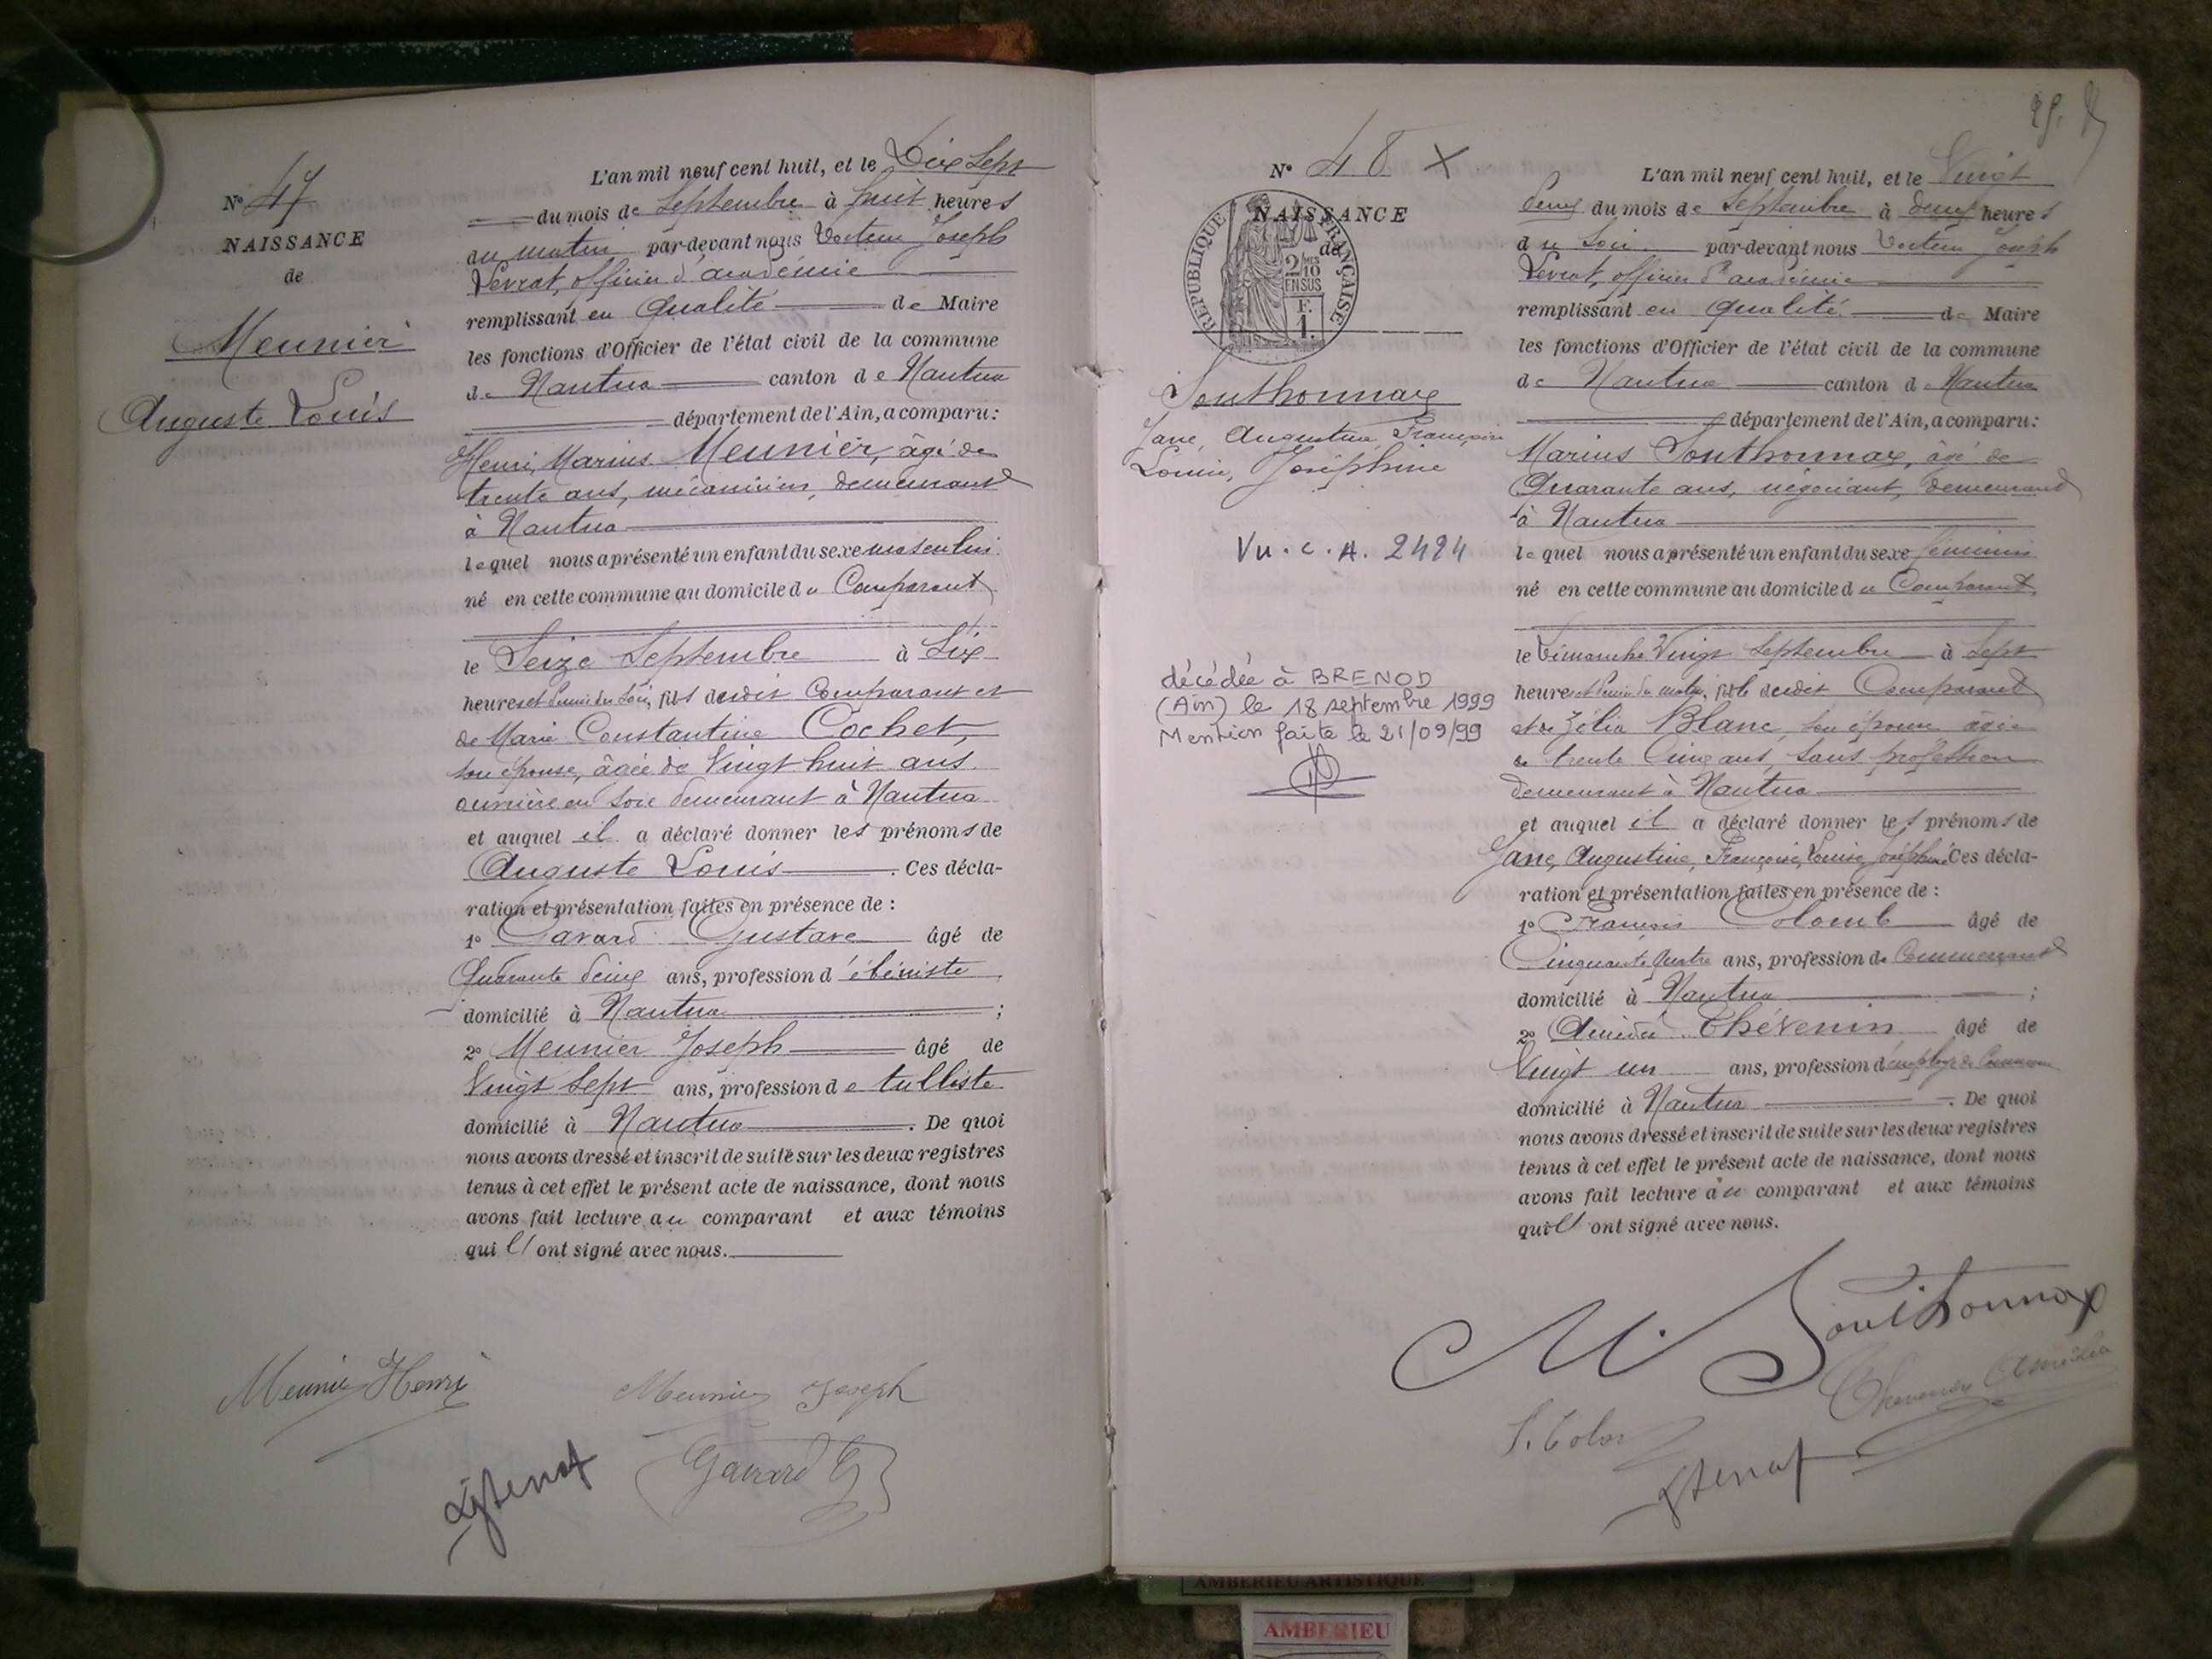 Nº 47
NAISSANCE
de
Meunier
Auguste Louis
L'an mil neuf cent huit, et le Dix Sept
du mois de Septembre à huit heures
du matin par-devant nous Victor Joseph
Levrat, officier d'académie
remplissant en qualité de Maire
les fonctions d'Officier de l'état civil de la commune
de Nantua canton de Nantua
département de l'Ain, a comparu:
Henri, Marius Meunier, âgé de
trente ans, mécanicien, demeurant
à Nantua
lequel nous a présenté un enfant du sexe masculin
né en cette commune au domicile du Comparant
le Seize Septembre à Six
heures et demie du soir, fils dudit Comparant et
de Marie Constantine Cochet,
son épouse, âgée de Vingt huit ans
ouvrière en soie demeurant à Nantua
et auquel il a déclaré donner les prénoms de
Auguste Louis. Ces décla-
ration et présentation faites en présence de :
1º Gavard Gustave âgé de
Quarante deux ans, profession d'ébéniste
domicilié à Nantua ;
2º Meunier Joseph âgé de
Vingt Sept ans, profession de tulliste
domicilié à Nantua. De quoi
nous avons dressé et inscrit de suite sur les deux registres
tenus à cet effet le présent acte de naissance, dont nous
avons fait lecture au comparant et aux témoins
qui ont signé avec nous.
Meunier Henri
Meunier Joseph
Gavard G
Nº 48 X
NAISSANCE
de
RÉPUBLIQUE FRANÇAISE
2/10 MES
EN SUS
F.
1.
Southonnax
Jane, Augustine, Françoise
Louise, Joséphine
Vu. C. A. 2424
décédée à BRENOD
(Ain) le 18 septembre 1999
Mention faite le 21/09/99
L'an mil neuf cent huit, et le Vingt
deux du mois de Septembre à deux heures
du soir par-devant nous Victor Joseph
Levrat, officier d'académie
remplissant en qualité de Maire
les fonctions d'Officier de l'état civil de la commune
de Nantua canton de Nantua
département de l'Ain, a comparu:
Marius Southonnax, âgé de
Quarante ans, négociant, demeurant
à Nantua
lequel nous a présenté un enfant du sexe féminin
né en cette commune au domicile du Comparant
le Dimanche Vingt Septembre à Sept
heures et demie du matin, fille dudit Comparant
et de Zélia Blanc, son épouse âgée
de trente cinq ans, sans profession
demeurant à Nantua
et auquel il a déclaré donner les prénoms de
Jane, Augustine, Françoise, Louise, Joséphine Ces décla-
ration et présentation faites en présence de :
1º François Colomb âgé de
Cinquante quatre ans, profession de Commerçant
domicilié à Nantua ;
2º Amédée Thévenin âgé de
Vingt un ans, profession d'employé de Commerce
domicilié à Nantua. De quoi
nous avons dressé et inscrit de suite sur les deux registres
tenus à cet effet le présent acte de naissance, dont nous
avons fait lecture au comparant et aux témoins
qui ont signé avec nous.
M. Southonnax
Thevenin Amédée
AMBERIEU ARTISTIQUE
AMBERIEU